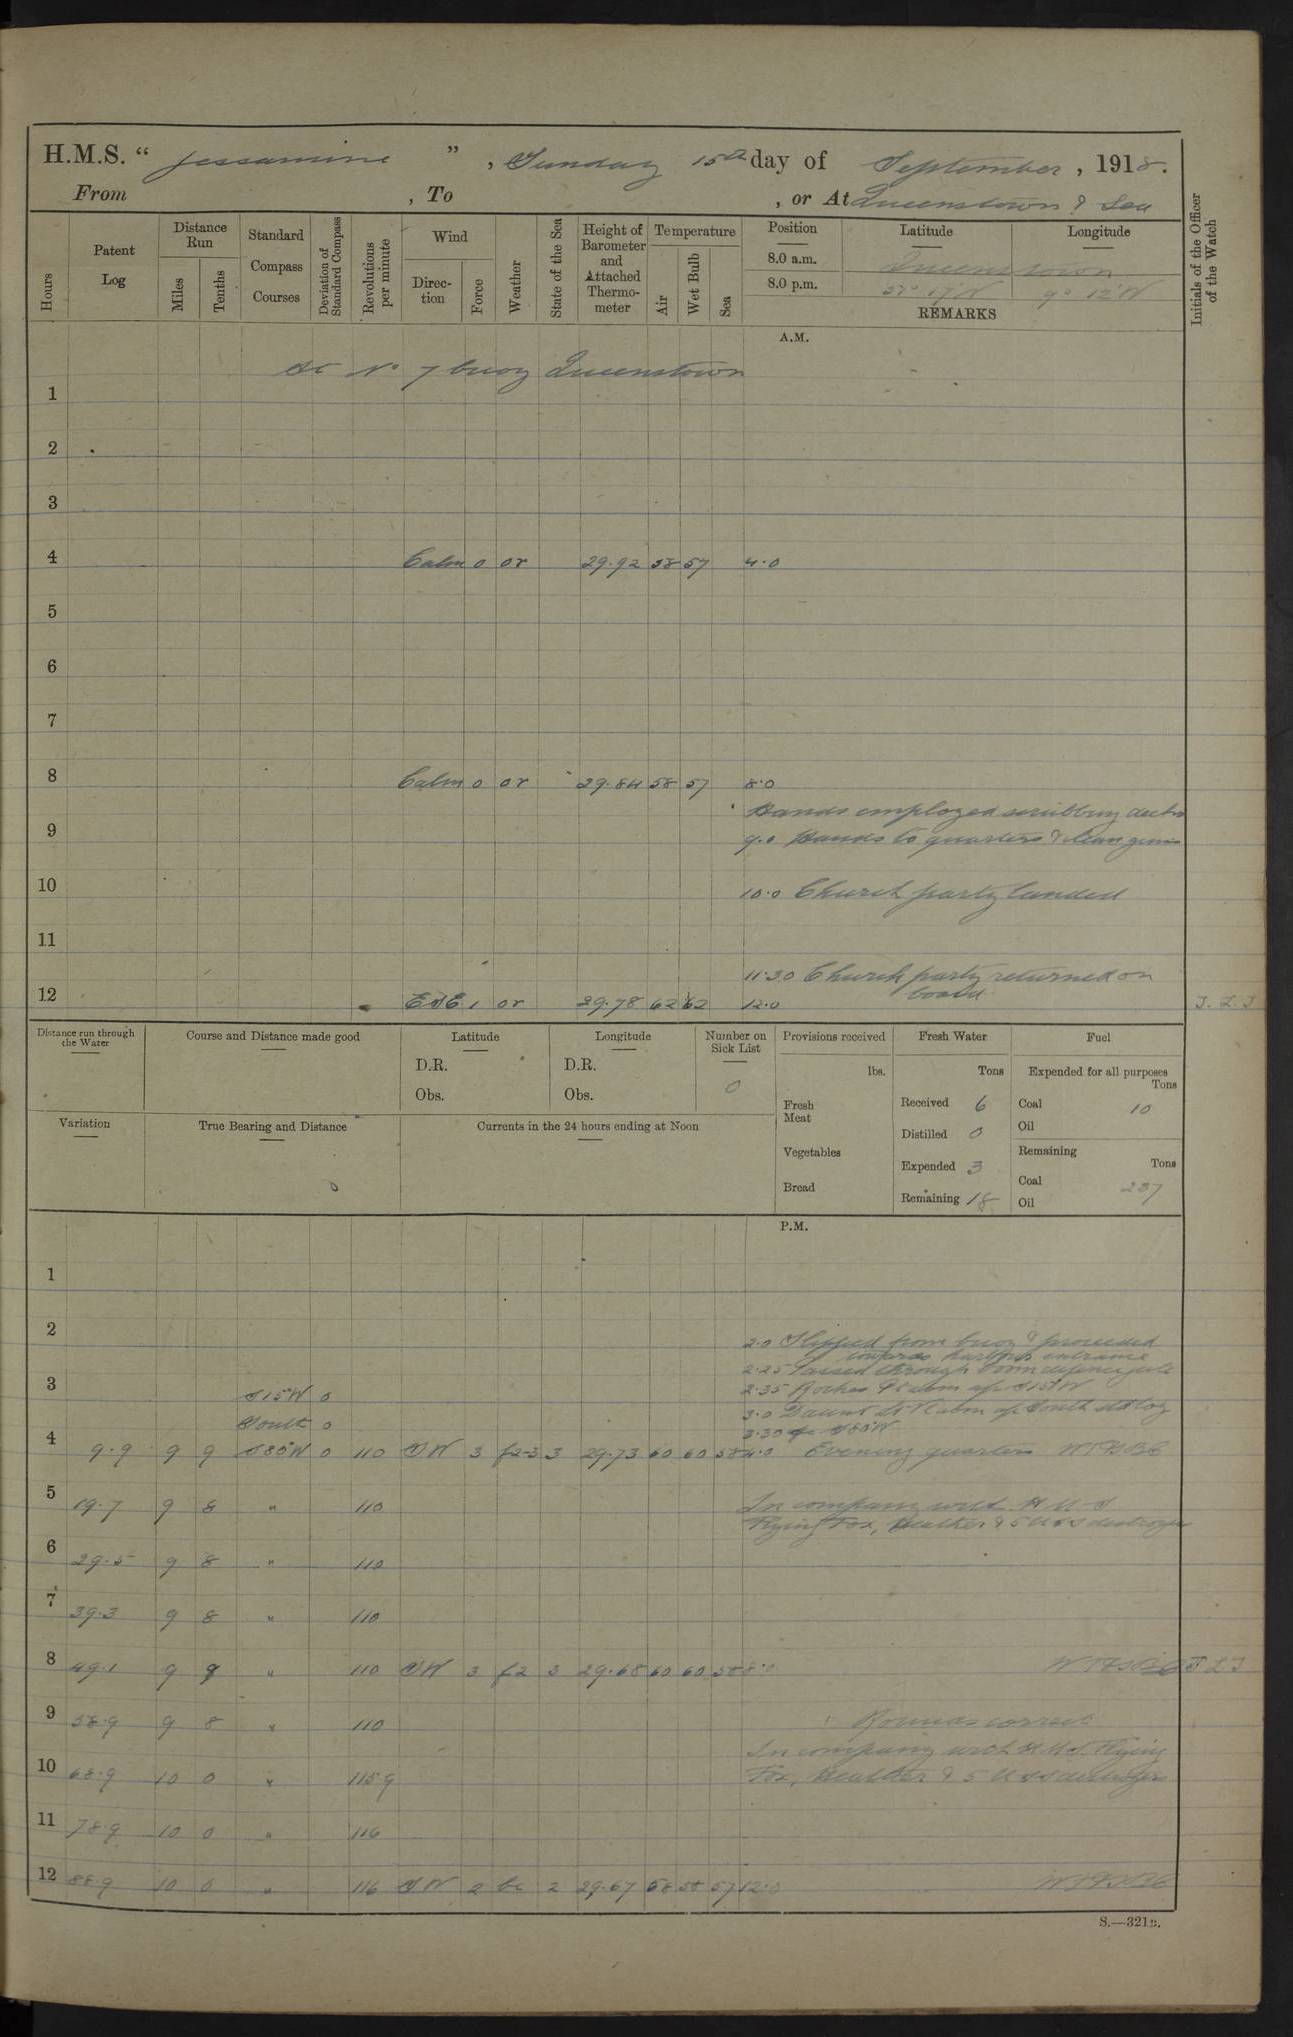 H.M.S. "Jessamine", Sunday 15th day of September, 1918.
From , To , or At Queenstown & Sea
Hours
Patent Log
Distance Run
Miles
Tenths
Standard Compass Courses
Deviation of Standard Compass
Revolutions per minute
Wind
Direction
Force
Weather
State of the Sea
Height of Barometer and Attached Thermometer
Temperature
Air
Wet Bulb
Sea
Position
Latitude
Longitude
8.0 a.m. Queenstown
8.0 p.m. 17' N 9° 12' W
REMARKS
Initials of the Officer of the Watch
A.M.
At No 7 buoy Queenstown
1
2
3
4 Calm 0 or 29.92 58 57 4.0
5
6
7
8 Calm 0 or 29.84 58 57 8.0
Hands employed scrubbing decks
9 9.0 Hands to quarters & clean guns
10 10.0 Church party landed
11
11.30 Church party returned on
board
12 ESE 1 or 29.78 62 62 12.0
Distance run through the Water
Course and Distance made good
Latitude
D.R.
Obs.
Longitude
D.R.
Obs.
Number on Sick List
0
Provisions received
lbs.
Fresh Meat
Vegetables
Bread
Fresh Water
Tons
Received 6
Distilled 0
Expended 3
Remaining 18
Fuel
Expended for all purposes
Tons
Coal 10
Oil
Remaining
Tons
Coal 237
Oil
Variation
True Bearing and Distance
Currents in the 24 hours ending at Noon
P.M.
1
2
2.0 Slipped from buoy & proceeded
towards harbour entrance
2.25 Passed through boom defence gate
3 S15°W 0 2.35 Roches Pt abm a/c S15°W
South 0 3.0 Daunt Lt V abm a/c South set log
3.30 a/c S80°W
4 9.9 9 9 S80°W 0 110 SW 3 f2-3 3 29.73 60 60 58 4.0 Evening quarters
5 19.7 9 8 " 110 In company with H M S
Flying Fox, Heather & 5 U S S destroyers
6 29.5 9 8 " 110
7 39.3 9 8 " 110
8 49.1 9 8 " 110 SW 3 f2 3 29.68 60 60 58 8.0
9 58.9 9 8 " 110 Rounds correct
In company with H M S Flying
10 68.9 10 0 " 115.9 Fox, Heather & 5 U S S destroyers
11 78.9 10 0 " 116
12 88.9 10 0 " 116 SW 2 bc 2 29.67 58 58 57 12.0
S.—321B.